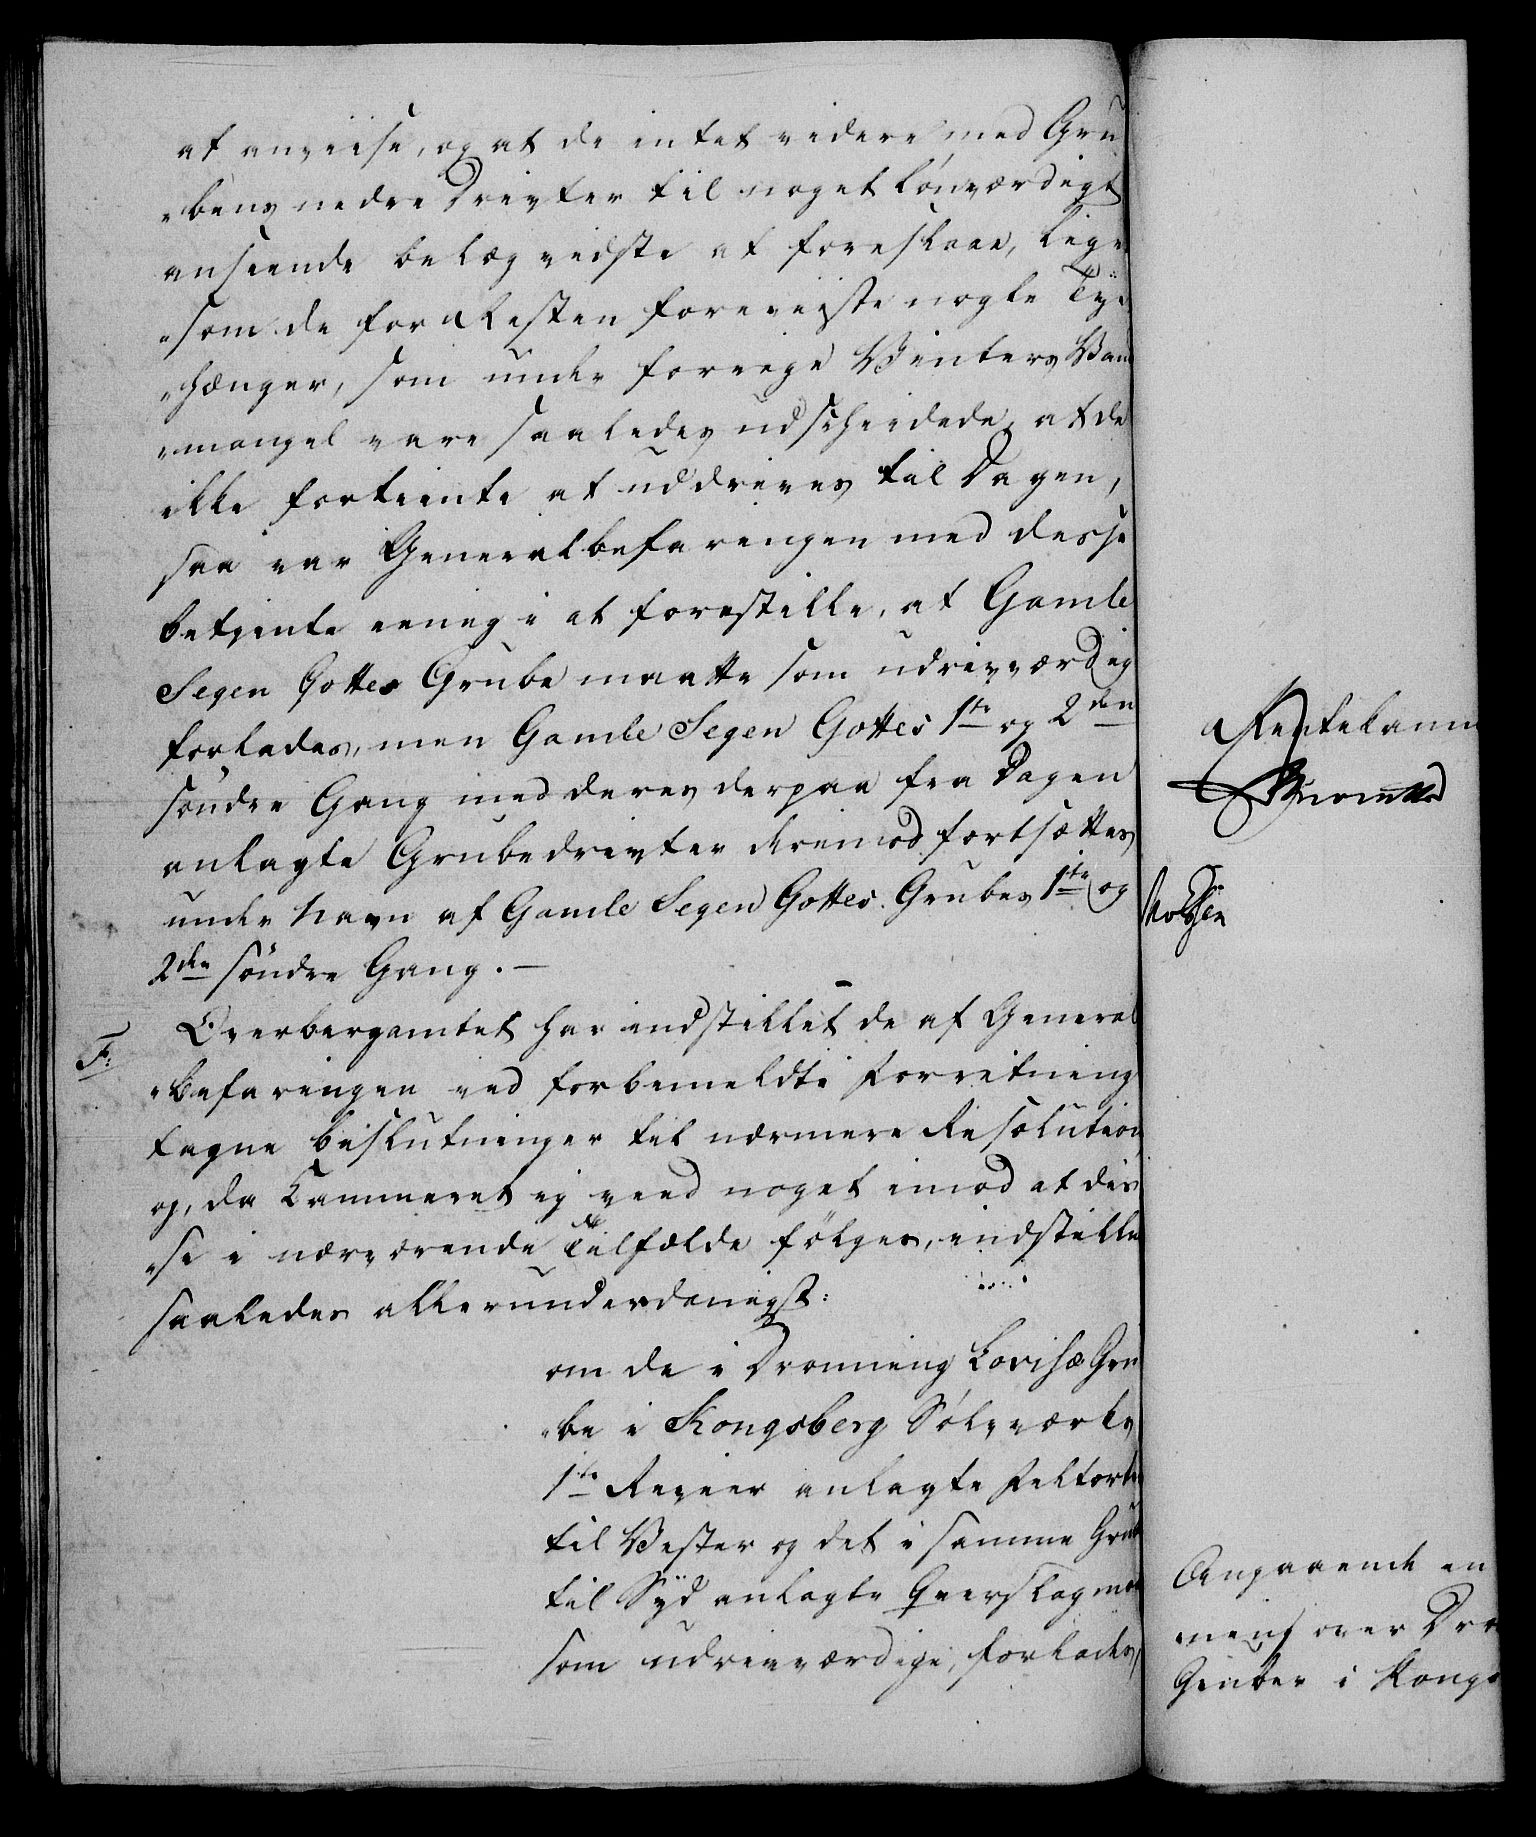 at anviise, og at de intet videre med Gru
"bens nedre Drivter til noget lönværdigt
anseende belæg vidste at foreslaae, lige
"som de for Resten foreviiste nogle
"hænger, som under forrige Vinters Vand
"mangel vare saaledes udscheidede, at de
ikke fortiente at uddrives til Dagen,
saa var Generalbefaringen med disse
betiente eenig i at forestille, at Gamle
Segen Gottes Grube maatte som udrivværdig
forlades, men Gamle Segen Gottes 1ste og 2den
söndre Gang med deres derpaa fra Dagen
anlagte Grubedrivter derimod fortsættes
under Navn af Gamle Segen Gottes Grubes 1ste og
2den söndre Gang. —
F: Overbergamtet har indstillet de af General
"befaringen ved forbemeldte Forretning
tagne Beslutninger til nærmere Resolution
og, da Kammeret ej veed noget imod at dis
"se i nærværende Tilfælde fölges, indstille
saaledes allerunderdanigst:
om de i Dronning Lovisæ Gru
"be i Kongsberg Sölvværks
1ste Reveer anlagte Feltorter
til Vester og det i samme Grube
til Syd anlagte Qverslag maa
som udrivværdige, forlades,
Rentekam
Angaaende en
ment over Dro
Gruber i Kongs